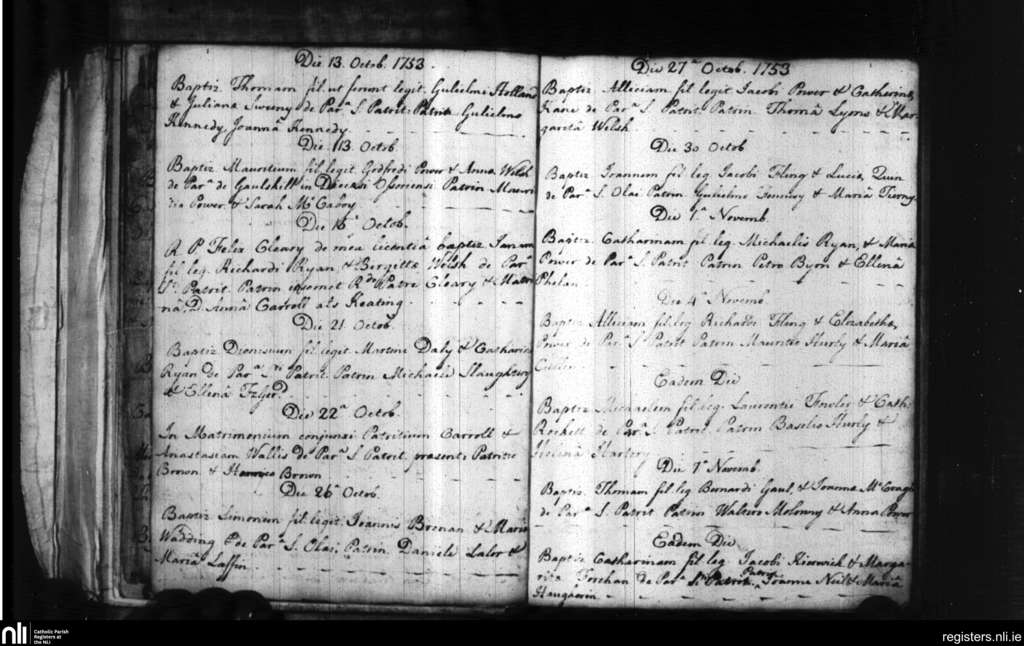 Die 13. Octob. 1753.
Baptiz. Thomam fil. ut ferunt legit. Gulielmi Holland
& Juliana Sweeny de Parª S. Patrit. Patrin Gulielmo
Kennedy, Joannâ Kennedy
Die 13. Octob
Baptiz Mauritium fil. legit. Godfredi Power & Anna Welsh
de Parª de Gaulskill in Diœcesi Ossoriensi Patrin Mauri
tio Power & Sarah Mc Caboy
Die 16ª Octob.
R. P. Felix Cleary de meâ licentiâ baptiz
fil leg. Richardi Ryan, & Bergettæ Welsh de Parª
Sti Patrit. Patrin Rdo Patre Cleary & Matri
nâ, D. Annâ Carroll als Keating
Die 21. Octob.
Baptiz Dionisium fil. legit. Martini Daly & Catharin
Ryan de Parª Sti Patrit. Patrin Michaele Slaughtery
& Ellenâ Fzger
Die 22ª Octob.
In Matrimonium conjunxi Patritium Carroll &
Anastasiam Wallis de Parª S. Patrit, present. Patritio
Brown & Henrico Brown
Die 26ª Octob.
Baptiz Simonem fil. legit. Joannis Brenan & Maria
Wadding de Parª S. Olai. Patrin. Daniele Lalor &
Mariâ Laffin
Die 27ª Octob. 1753
Baptiz. Alleciam fil legit Jacobi Power & Catherinæ
Kane de Parª S. Patrit. Patrin Thomâ Lyons & Mar
garetâ Welsh
Die 30 Octob
Baptiz. Joannem fil leg. Jacobi Fling & Lucia Quin
de Parª S. Olai Patrin Gulielmo & Mariâ Tierny
Die 1ª Novemb
Baptiz. Catharinam fil leg. Michaelis Ryan, & Maria
Power de Parª S. Patrit Patrin Petro Byrn & Ellenâ
Phelan
Die 4ª Novemb.
Baptiz Alleciam fil leg Richardi Fling & Elizabethæ
Power de Parª S. Patrit Patrin Mauritio Hurly & Mariâ
Eadem Die
Baptiz Michaelem fil leg. Laurentii Fowler & Cath:
Rockett de Parª S. Patrit. Patrin Basilio Hurly &
Helenâ Hartery
Die 7ª Novemb.
Baptiz. Thomam fil leg Bernardi Gaul, & Joannæ Mc
de Parª S. Patrit Patrin Waltero Molonny & Anna Power
Eadem Die
Baptiz Catharinam fil leg. Jacobi & Marga
rita de Parª Sti Patrit. Patrin Joanne Neil & Mariâ
nli
Catholic Parish
Registers at
the NLI
registers.nli.ie